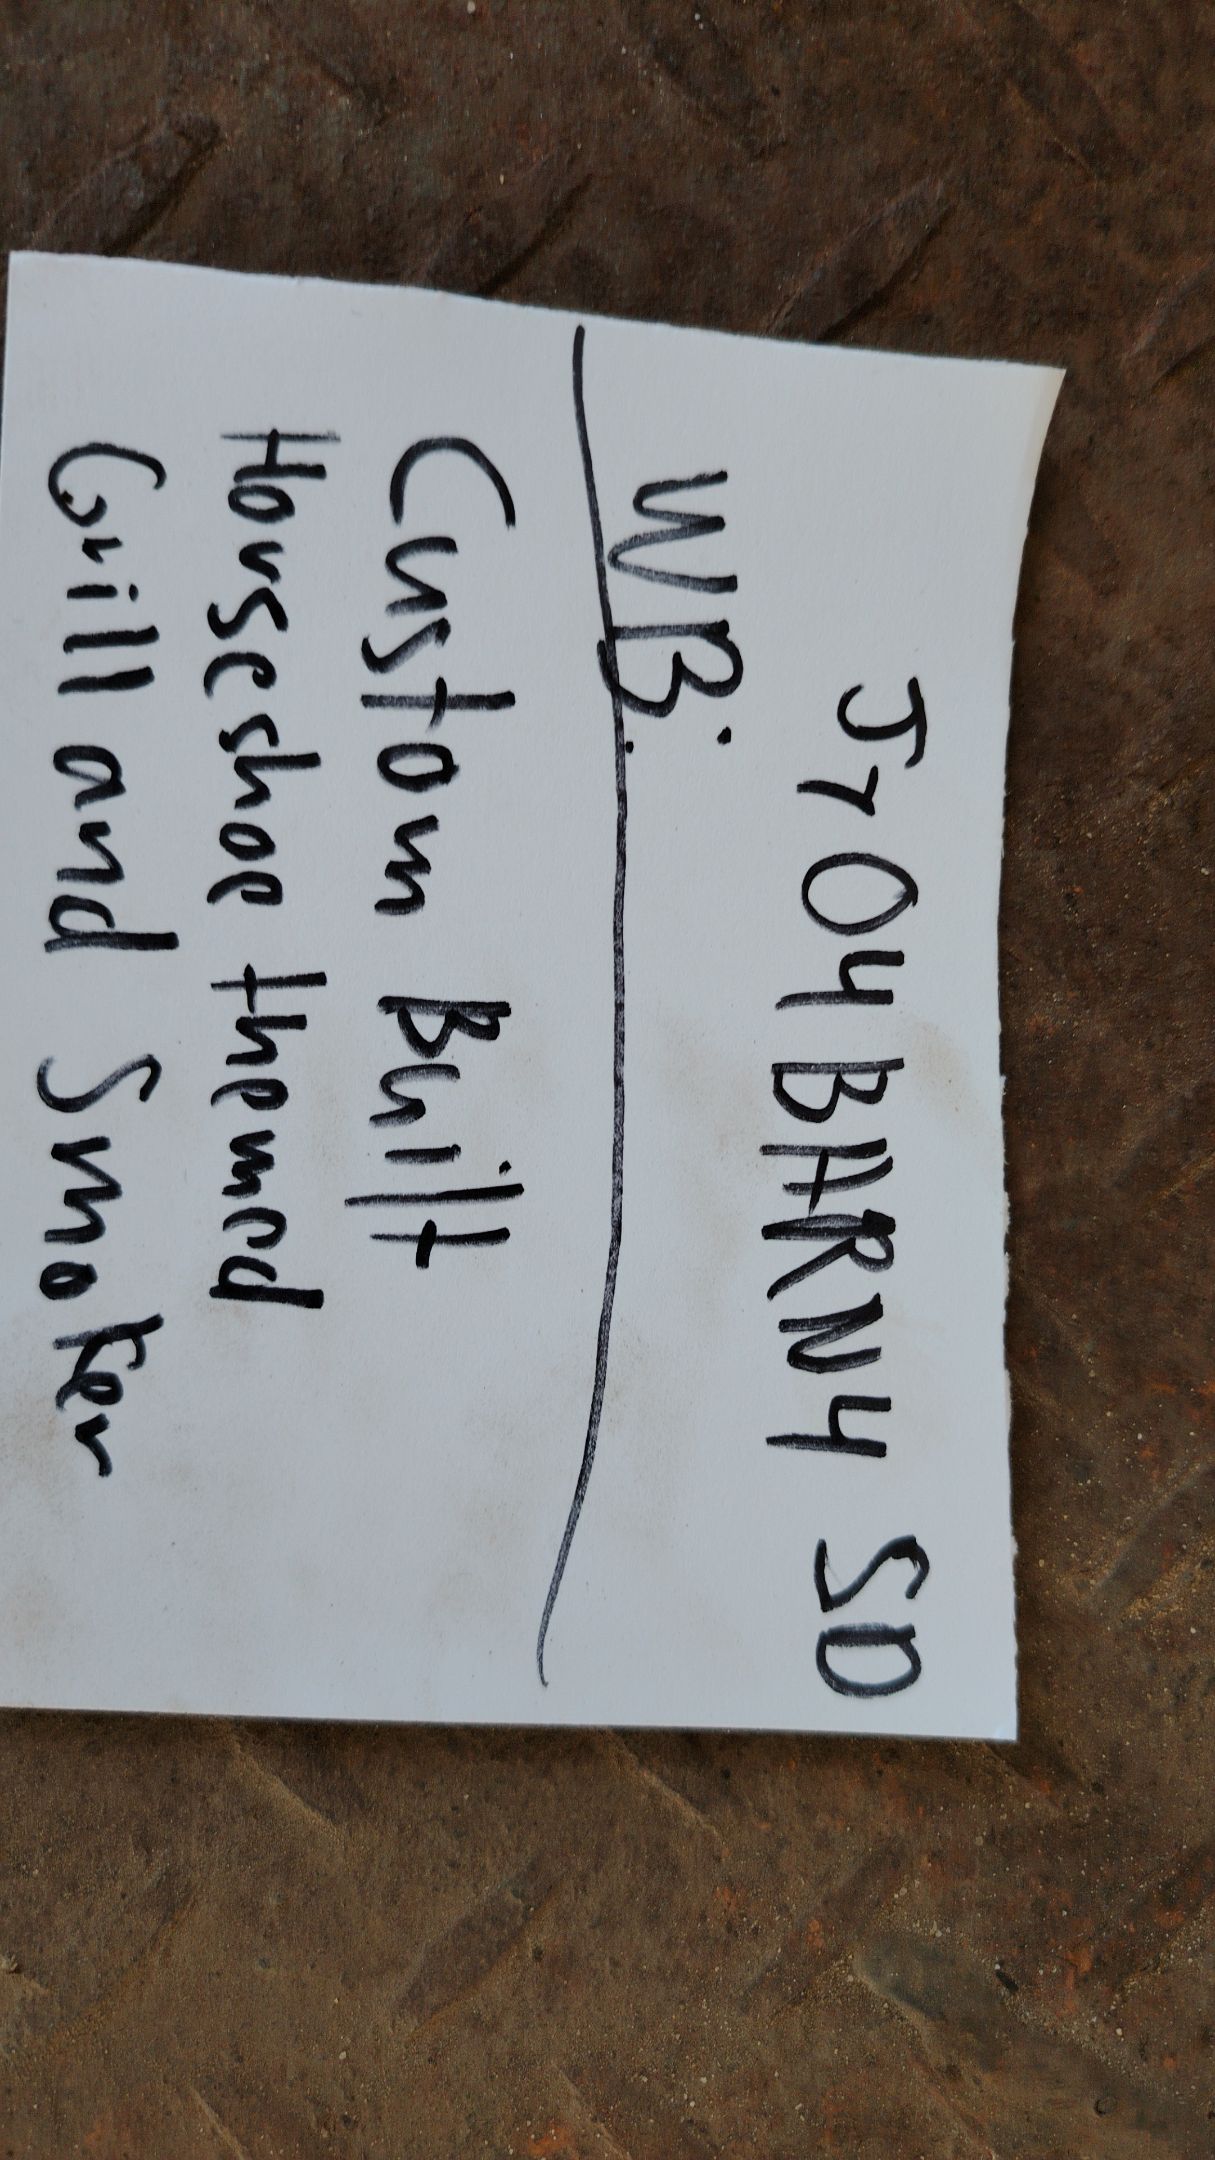 J704BARN4 SD
WB:
Custom Built
Horseshoe themed
Grill and Smoker